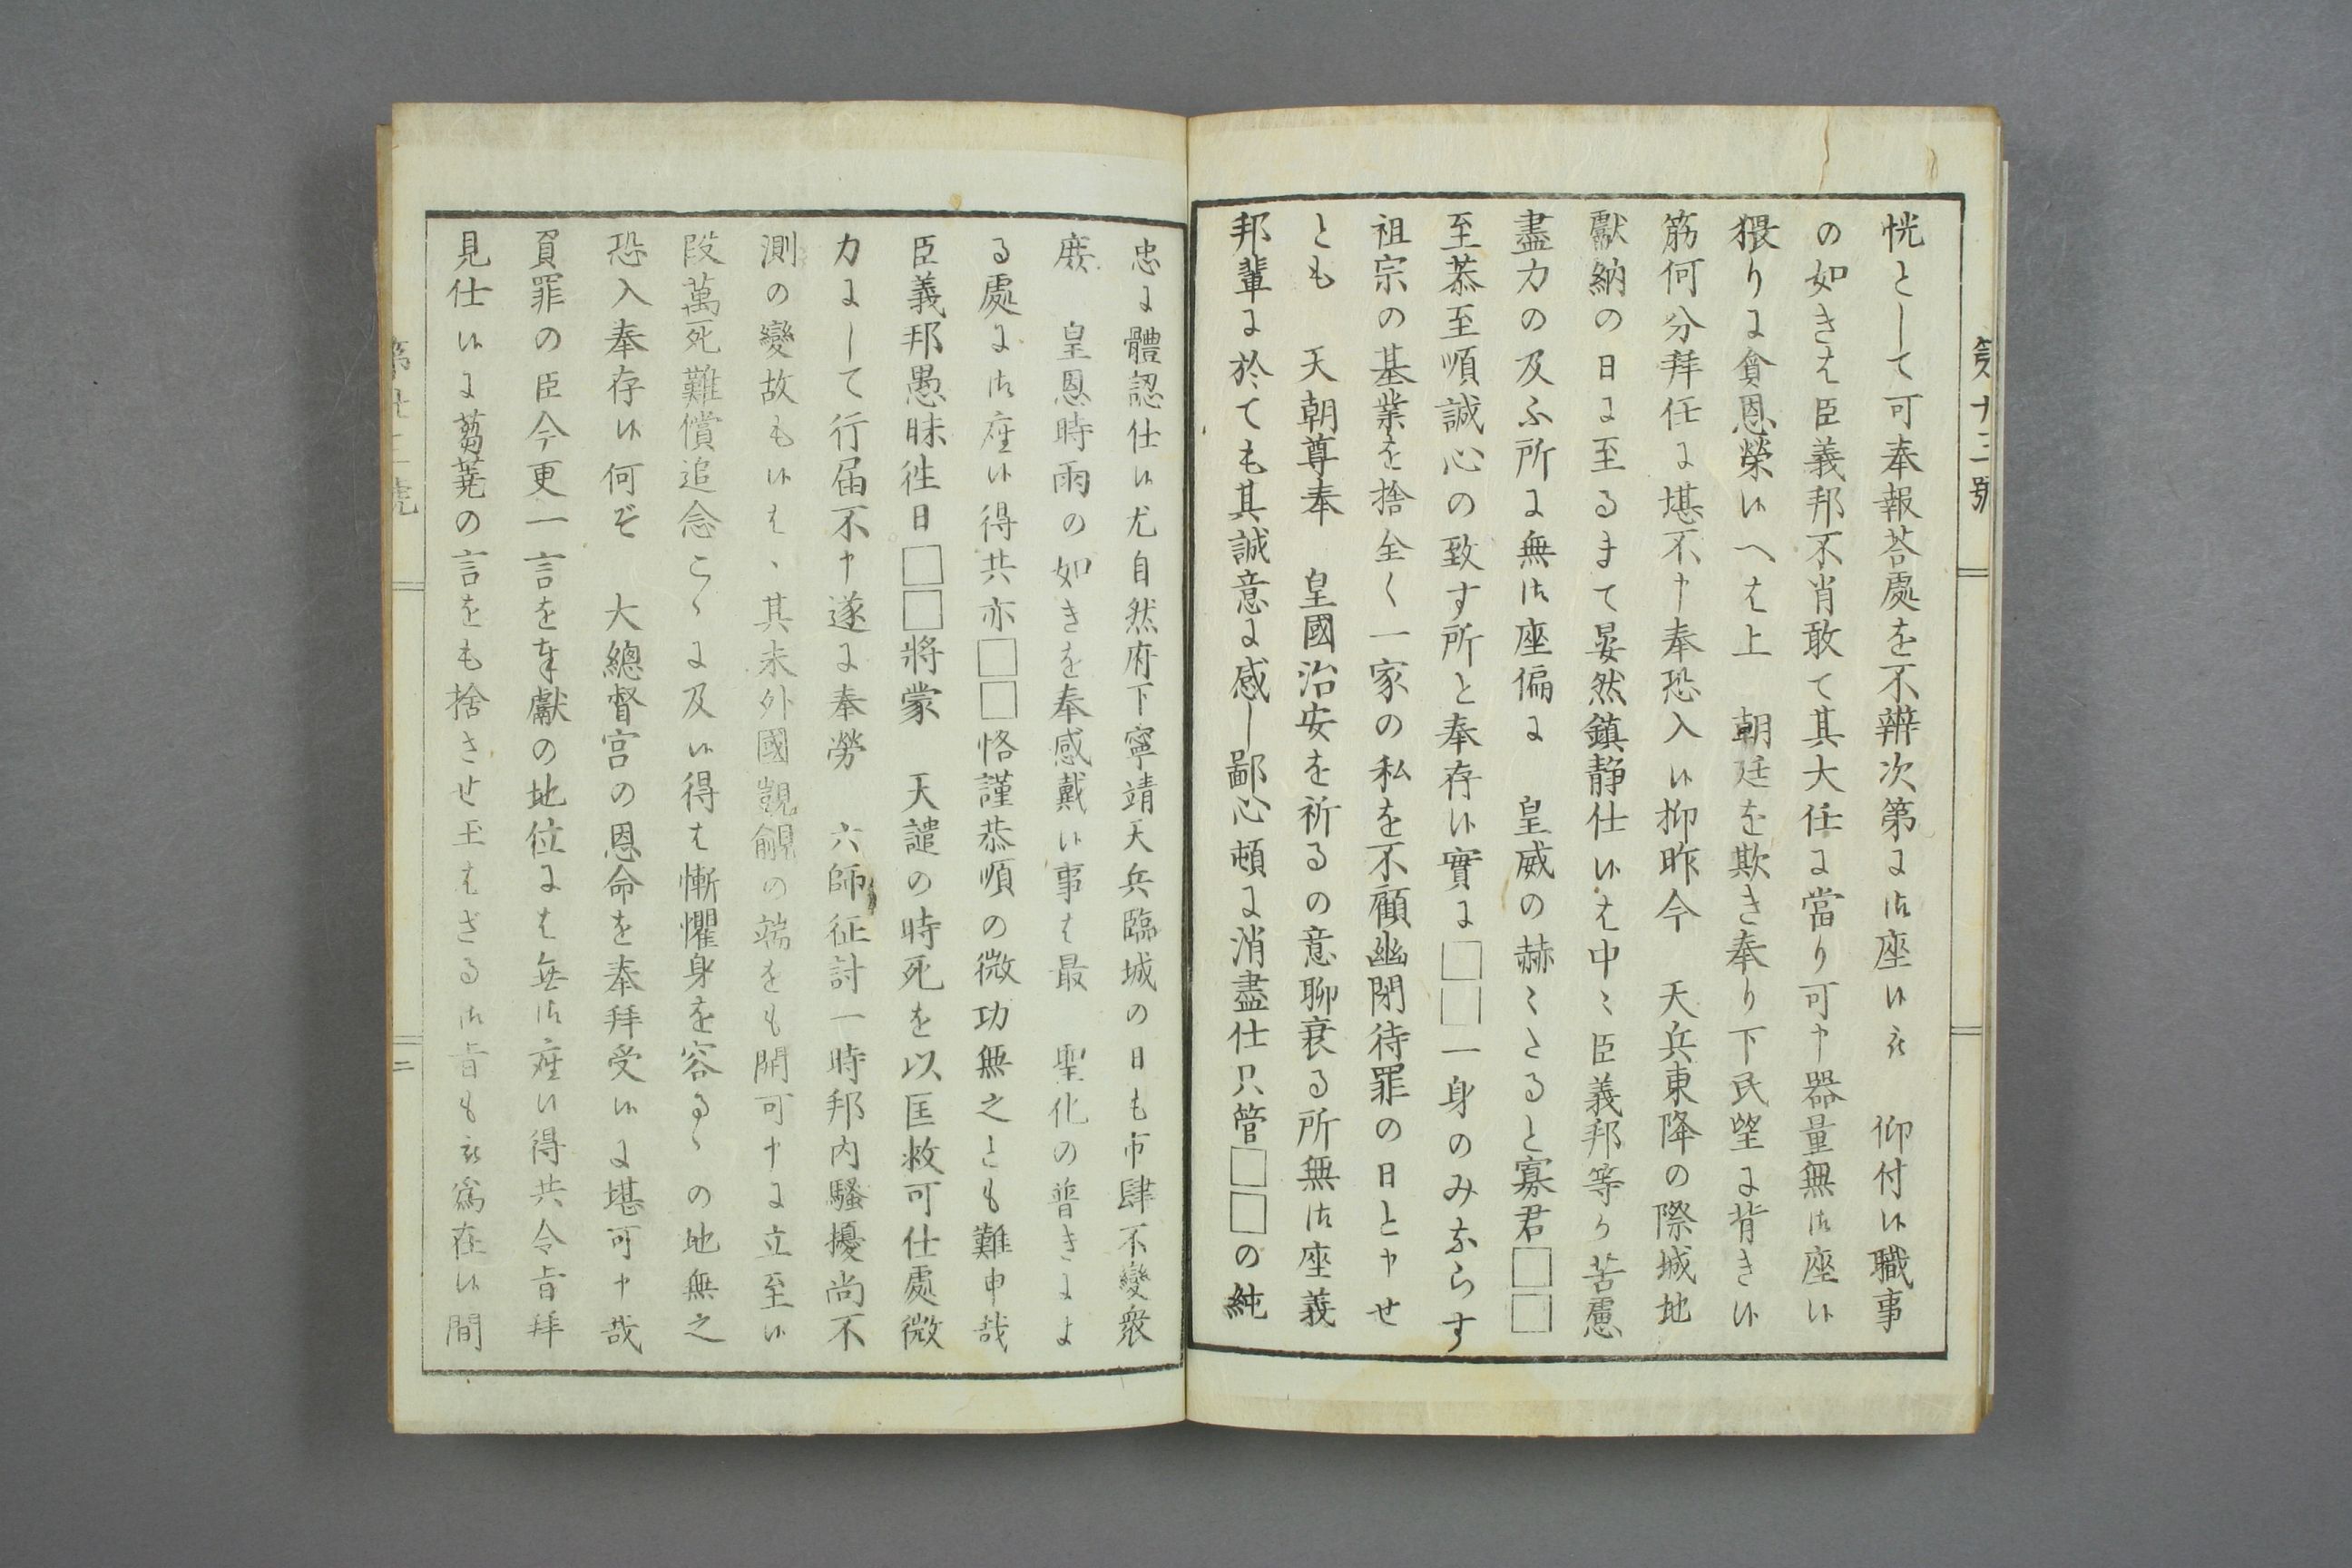 第廿三號
恍として可奉報荅處を不辨次第に御座候被　仰付候職事
の如きは臣義邦不肖敢て其大任に當り可申器量無御座候
猥りに貪恩榮候へは上　朝廷を欺き奉り下民望に背き候
筋何分拜任に堪不申奉恐入候抑昨今　天兵東降の際城地
獻納の日に至るまて晏然鎮静仕候は中〻臣義邦等か苦慮
盡力の及ふ所に無御座偏に　皇威の赫〻たると寡君□□
至恭至順誠心の致す所と奉存候實に□□一身のみならす
祖宗の基業を捨全く一家の私を不顧幽閉待罪の日と申せ
とも　天朝尊奉　皇國治安を祈るの意聊衰る所無御座義
邦輩に於ても其誠意に感し鄙心頓に消盡仕只管□□の純
忠に體認仕候尤自然府下寧靖天兵臨城の日も市肆不變衆
庶　皇恩時雨の如きを奉感戴候事は最　聖化の普きによ
る處に御座候得共亦□□恪謹恭順の微功無之とも難申哉
臣義邦愚昧徃日□□將蒙　天譴の時死を以匡救可仕處微
力にして行届不申遂に奉勞　六師征討一時邦内騷擾尚不
測の變故も候はゝ其末外國覬覦の端をも開可申に立至候
段萬死難償追念こゝに及候得は慚懼身を容るゝの地無之
恐入奉存候何ぞ　大總督宮の恩命を奉拜受候に堪可申哉
負罪の臣今更一言を奉獻の地位には無御座候得共令旨拜
見仕候に蒭蕘の言をも捨させ玉はざる御旨も被爲在候間
二